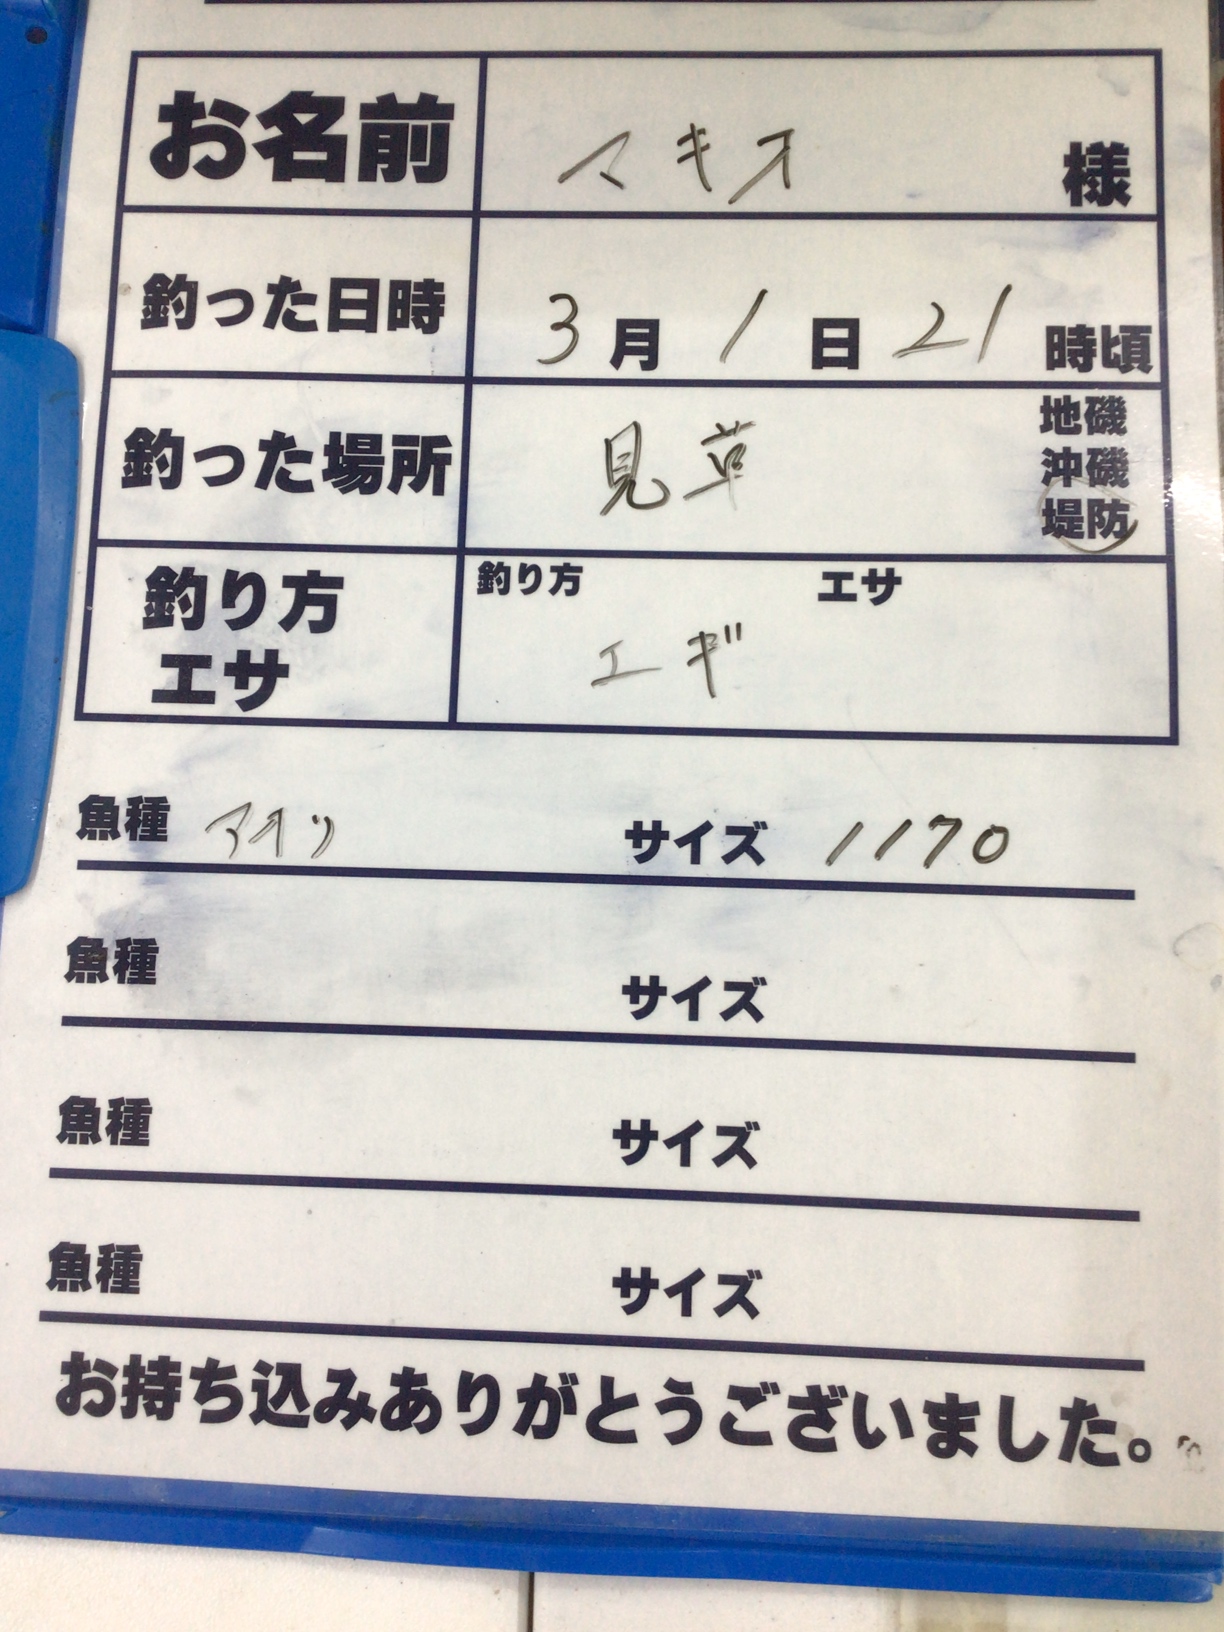 お名前 マキオ 様
釣った日時 3月1日21時頃
釣った場所 見草 地磯
沖磯
堤防
釣り方
エサ
釣り方 エサ
エギ
魚種 アオリ サイズ 1170
魚種 サイズ
魚種 サイズ
魚種 サイズ
お持ち込みありがとうございました。